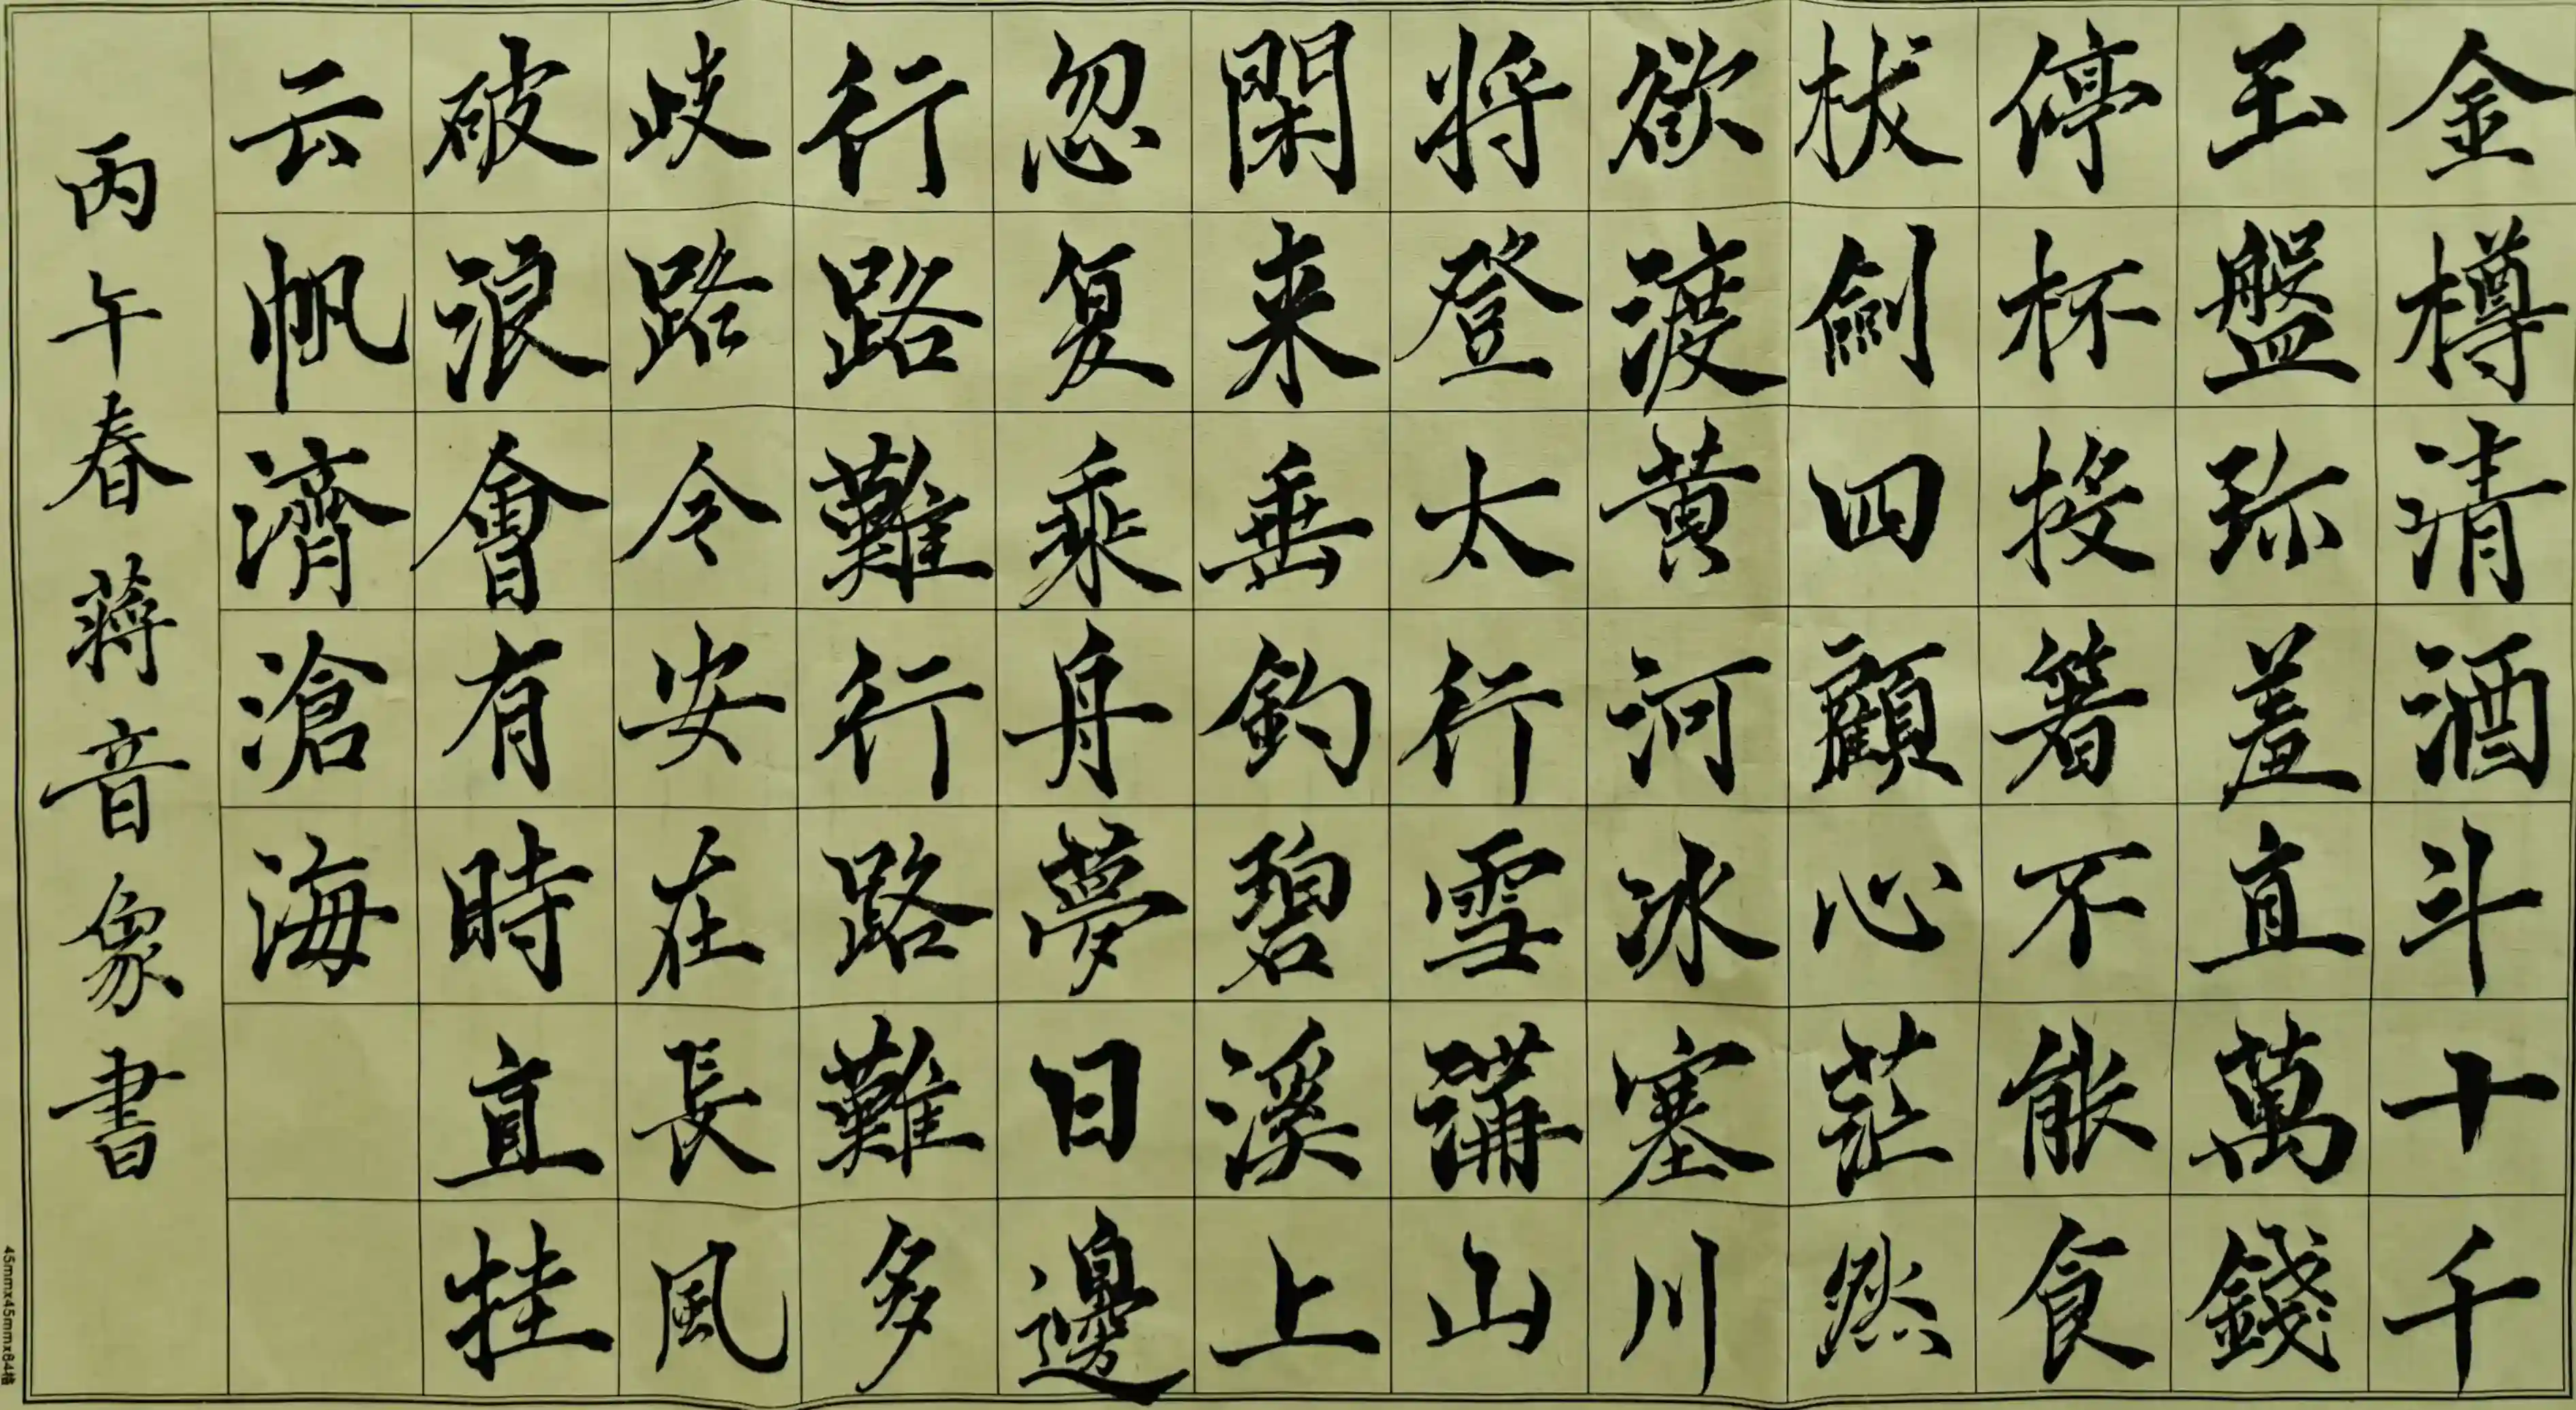 金樽清酒斗十千
玉盤珎羞直萬錢
停杯投箸不能食
拔劍四顧心茫然
欲渡黄河冰塞川
將登太行雪滿山
閑来垂釣碧溪上
忽复乘舟夢日邊
行路難行路難多
歧路今安在長風
破浪會有時直挂
云帆濟滄海
丙午春蔣音象書
45mmx45mmx84格